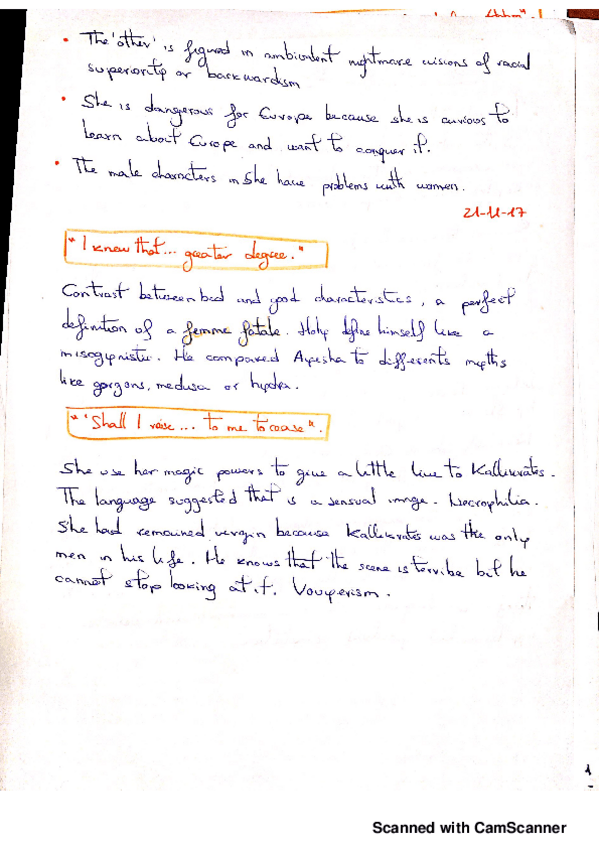 • The 'other' is figured in ambivalent nightmare visions of racial
superiority or backwardism
• She is dangerous for Europe because she is curious to
learn about Europe and want to conquer it.
• The male characters in She have problems with women.
21-11-17
"I knew that... greater degree."
Contrast between bad and good characteristics, a perfect
definition of a femme fatale. Holly define himself like a
misogynistic. He compared Ayesha to differents myths
like gorgons, medusa or hydra.
"Shall I raise... to me to course".
She use her magic powers to give a little live to Kallikrates.
The language suggested that is a sensual image. Necrophilia.
She had remained vergin because Kallikrates was the only
men in his life. He knows that the scene is terribe but he
cannot stop looking at it. Vouyerism.
1
Scanned with CamScanner